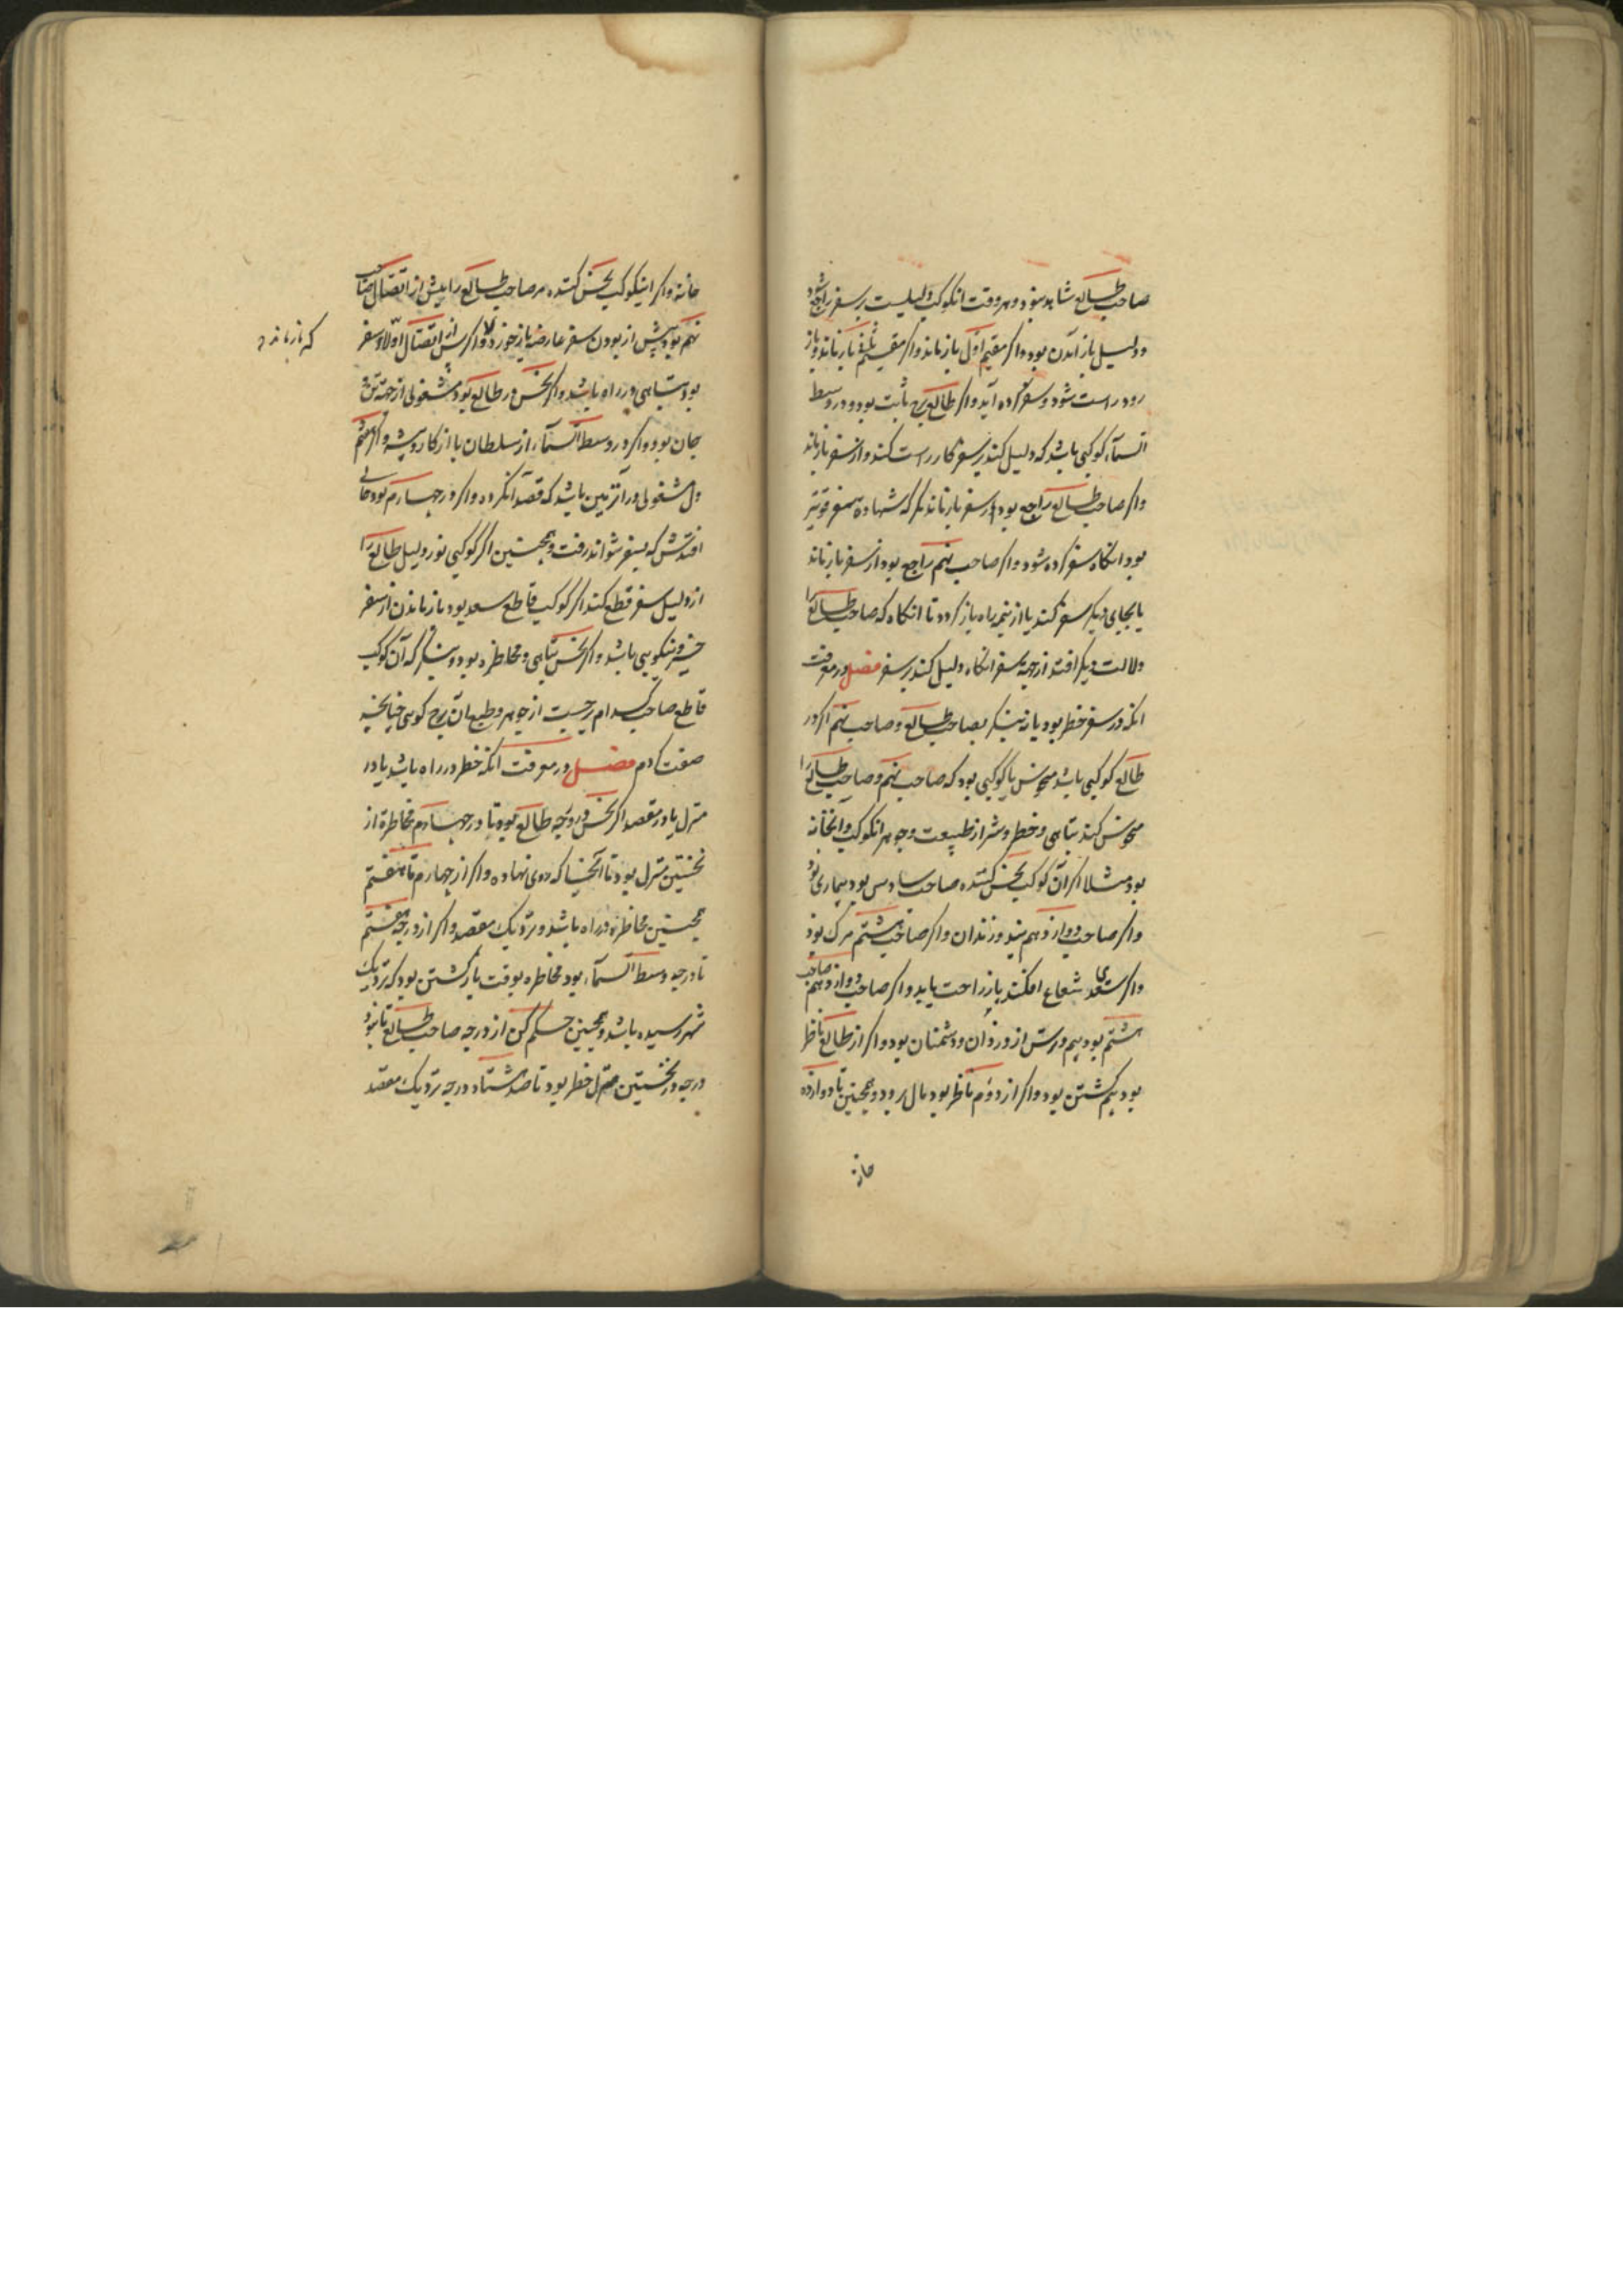 صاحب طالع شاهد بود و هر وقت انکوکب دلیلست بر سفر راجع شود
و دلیل باز آمدن بود و اکر مقیم اول باز ماند و اکر مقیم
رود راست شود و سفر کرده آید و اکر طالع برج ثابت بود و در وسط
السماء کوکبی باشد که دلیل کند بر سفر کار راست کند و از سفر باز ماند
و اکر صاحب طالع راجع بود از سفر باز ماند مکر که شهادة سفر قویتر
بود انکاه سفر کرده شود و اکر صاحب نهم راجع بود از سفر باز ماند
یا بجای دیکر سفر کند یا از نیمه راه باز کردد تا انکاه که صاحب طالع را
دلالت دیکر افتد از جهة سفر انکاه دلیل کند بر سفر فصل در معرفت
انکه در سفر خطر بود یا نه بنکر بصاحب طالع و صاحب نهم اکر در
طالع کوکبی باشد منحوس یا کوکبی بود که صاحب نهم و صاحب طالع را
منحوس کند تباهی و خطر و شر از طبیعت و جوهر انکوکب و انخانه
بود مثلا اکر آن کوکب نحس کننده صاحب سادس بود بیماری بود
و اکر صاحب دوازدهم بند و زندان و اکر صاحب هشتم مرک بود
و اکر سعدی شعاع افکند باز راحت یابد و اکر صاحب دوازدهم صاحب
هشتم بود بیم و ترس از دزدان و دشمنان بود و اکر از طالع ناظر
بود بیم کشتن بود و اکر از دوم ناظر بود مال برود و همچنین تا دوازده
خانه
خانه و اکر اینکوکب نحس کننده مر صاحب طالع را پیش از اتصال صاحب
نهم بود پیش از بودن سفر عارضه باز خورد و اکر پس از اتصال اولا و سفر
که باز ماند
بود تباهی در راه باشد و اکر نحس در طالع بود مشغولی از جهة تن
جان بود و اکر در وسط السماء از سلطان یا از کار و پیشه و اکر هشتم
دل مشغولی در آن زمین باشد که قصد آنکرده و اکر در چهارم بود حالی
افتدش که بسفر نتواند رفت و همچنین اکر کوکبی نور دلیل طالع را
از دلیل سفر قطع کند اکر کوکب قاطع سعد بود باز ماندن از سفر
خیر و نیکویی باشد و اکر نحس تباهی و مخاطره بود و بنکر که آن کوکب
قاطع صاحب کدام برجست از جوهر و طبع ان برج کوئی چنانچه
صفت کردم فصل در معرفت آنکه خطر در راه باشد یا در
منزل یا در مقصد اکر نحس در درجه طالع بود تا درجه چهارم مخاطره از
نخستین منزل بود تا آنجا که روی نهاده و اکر از چهارم تا هفتم
همچنین مخاطره در راه باشد و نزدیک مقصد و اکر از درجه هفتم
تا درجه وسط السماء بود مخاطره بوقت بازکشتن بود که نزدیک
شهر رسیده باشد و همچنین حکم کن از درجه صاحب طالع تا نود
درجه در نخستین منزل خطر بود تا صد هشتاد درجه نزدیک مقصد